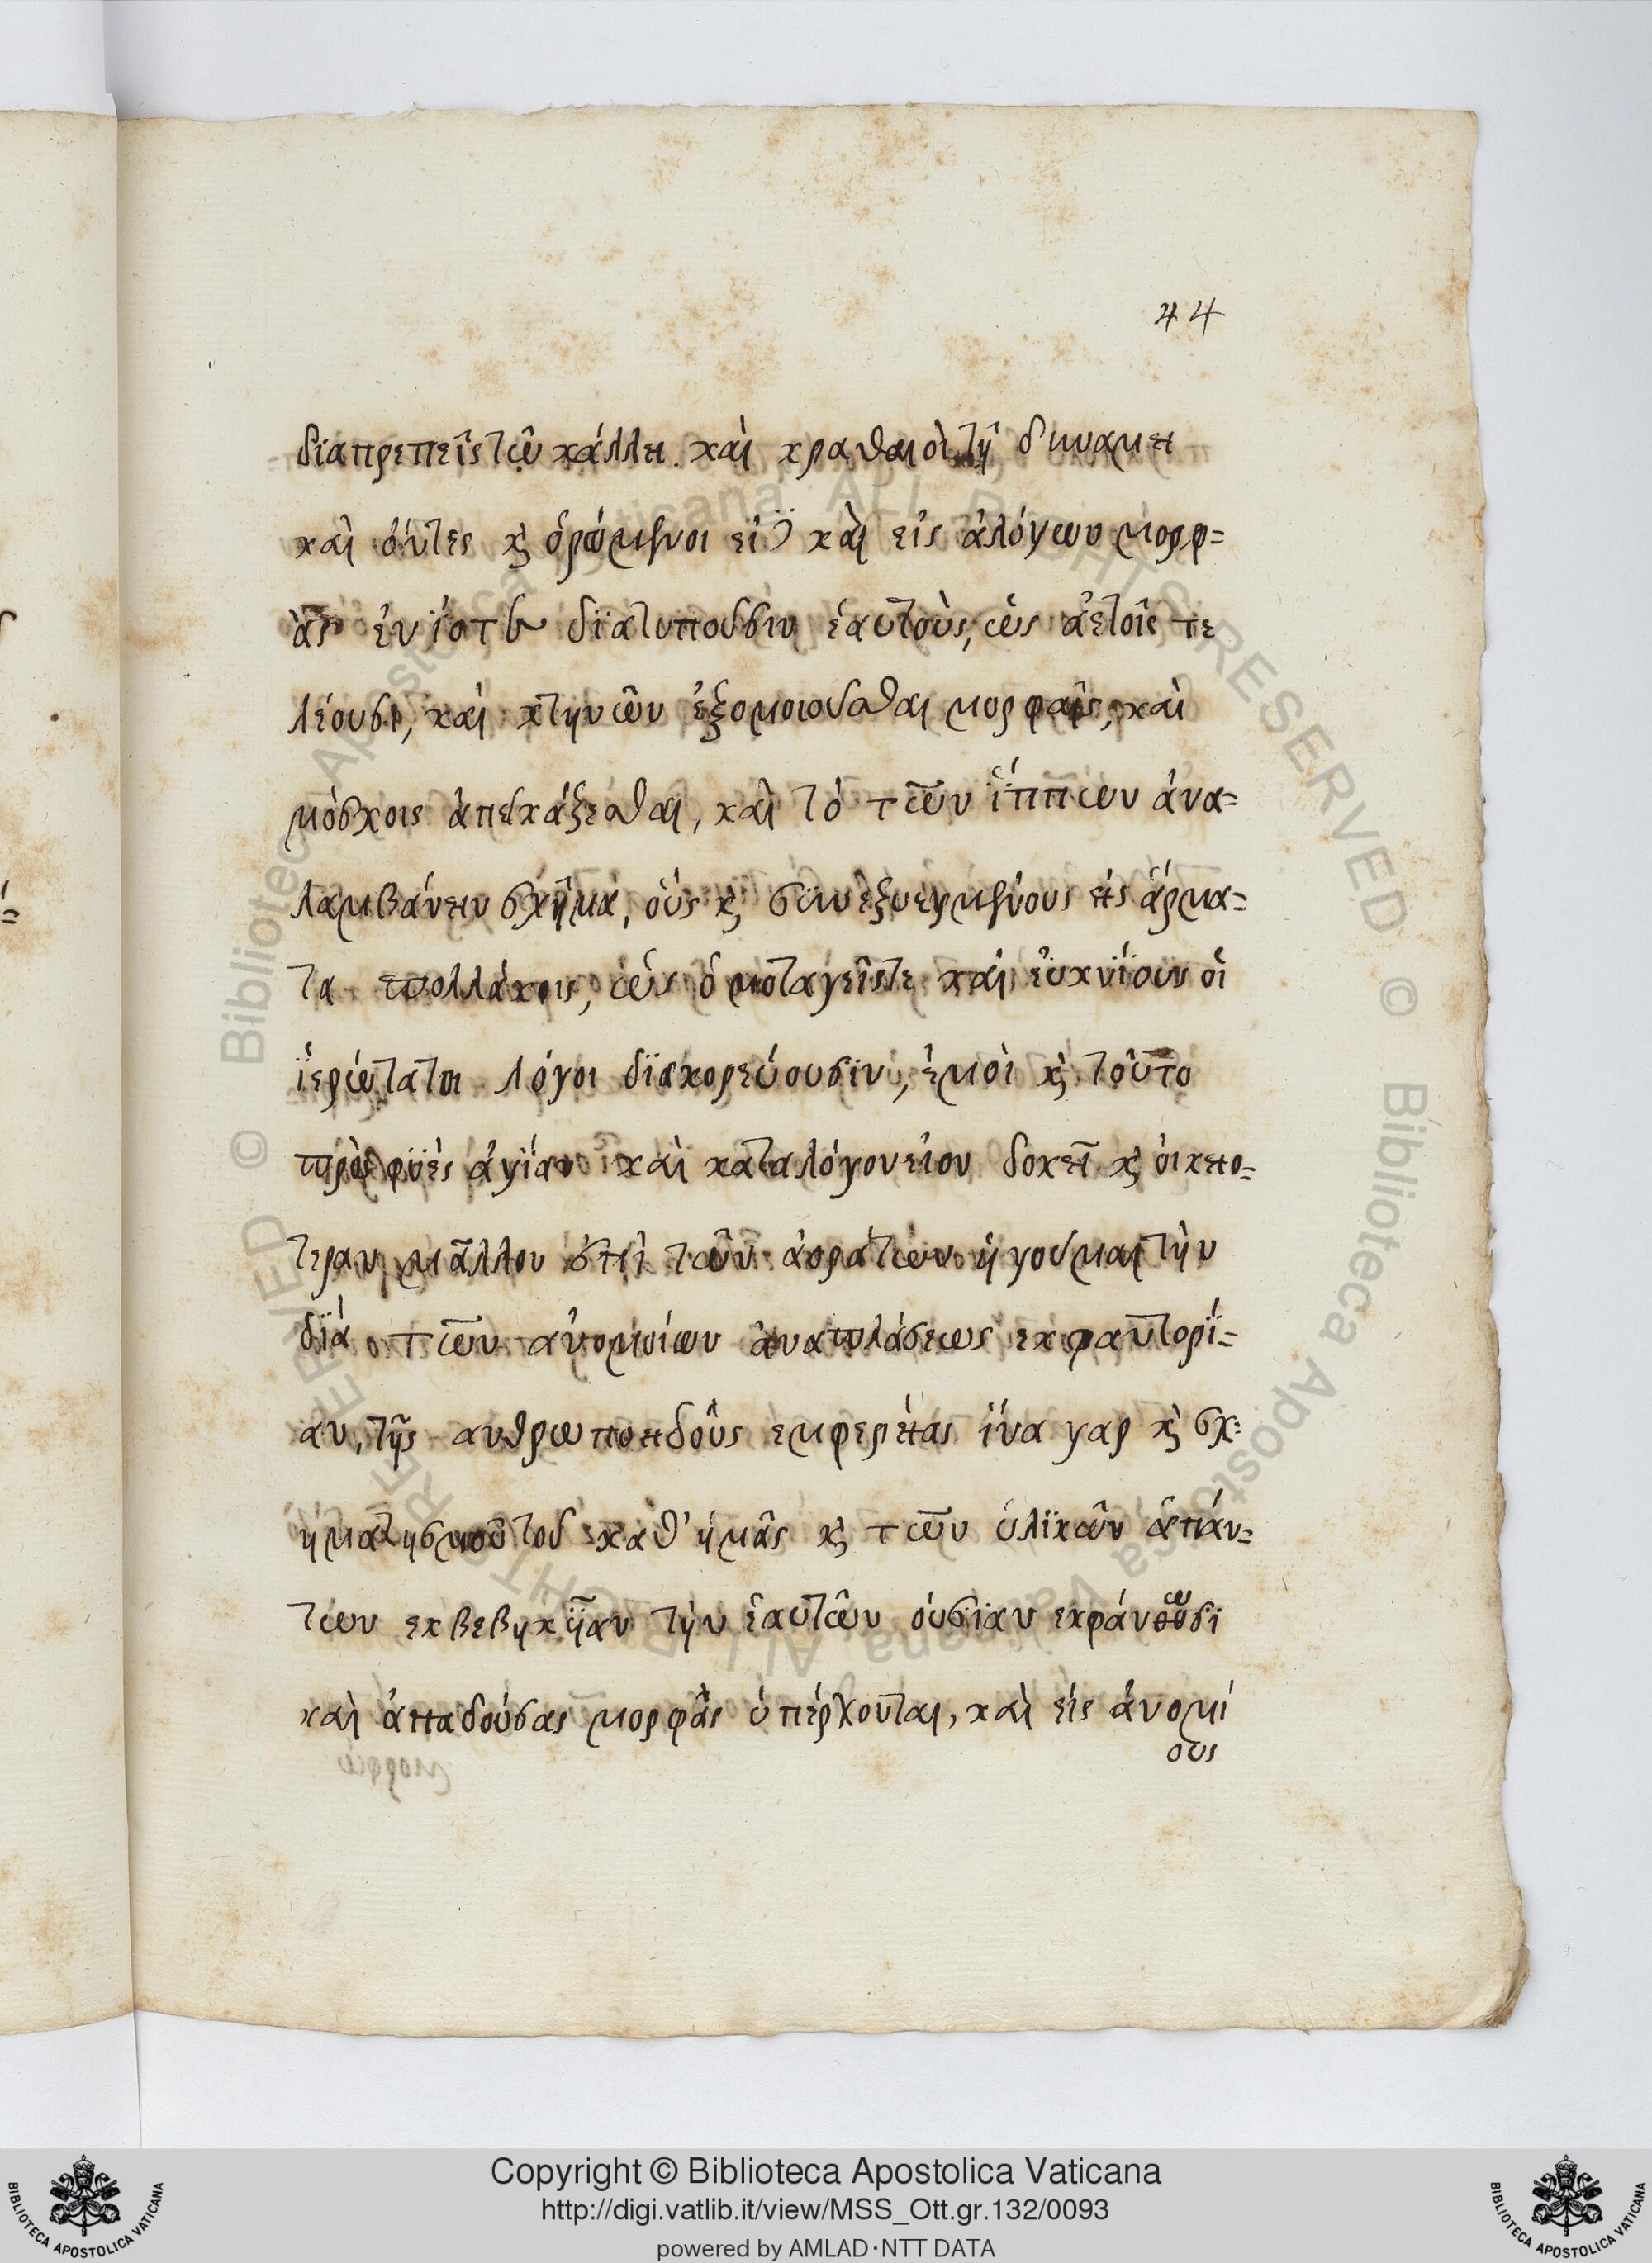 44
διαπρεπεῖς τῷ κάλλει. καὶ κραθαιοὶ τῇ δυναμει
καὶ ὄντες ϗ ὁρώμενοι εἰ καὶ εἰς ἀλόγων μορφ=
ὰς ἐνίοτε διατυπουσιν ἑαυτοὺς, ὡς ἀετοῖς τε
λέουσι, καὶ κτηνῶν ἐξομοιουσθαι μορφαῖς, καὶ
μόσχοις ἀπεικάξεσθαι, καὶ τὸ τῶν ἵππων ἀνα=
λαμβάνειν σχῆμα, οὓς ϗ συνεξυεγμένους εἰς ἅρμα=
τα πολλάκις, ὡς ὁμοταγεῖς τε καὶ εὐχνίους οἱ
ἱερώτατοι λόγοι διακορεύουσιν, ἐμοὶ ϗ τοῦτο
πρὸς φυὲς ἁγίαν καὶ καταλόγονείον δοκεῖ ϗ οἰκειο=
τεραν μᾶλλον ἐπὶ τῶν ἀορατων ἡγουμαι τὴν
διὰ τῶν ανομοίων ἀναπλάσεως εκφαντορί=
αν, τῆς ανθρωποειδοῦς εμφερείας ἵνα γαρ ϗ σχ=
ηματησμοῦ τοῦ καθ' ἡμᾶς ϗ τῶν ὑλικῶν ἁπάν=
των εκβεβηκῆαν τὴν ἑαυτῶν ουσίαν εκφάνωσι
καὶ ἀπαδούσας μορφὰς ὑπέρχονται, καὶ εἰς ἀνομί
ους
Copyright © Biblioteca Apostolica Vaticana
http://digi.vatlib.it/view/MSS_Ott.gr.132/0093
powered by AMLAD·NTT DATA
BIBLIOTECA APOSTOLICA VATICANA
BIBLIOTECA APOSTOLICA VATICANA